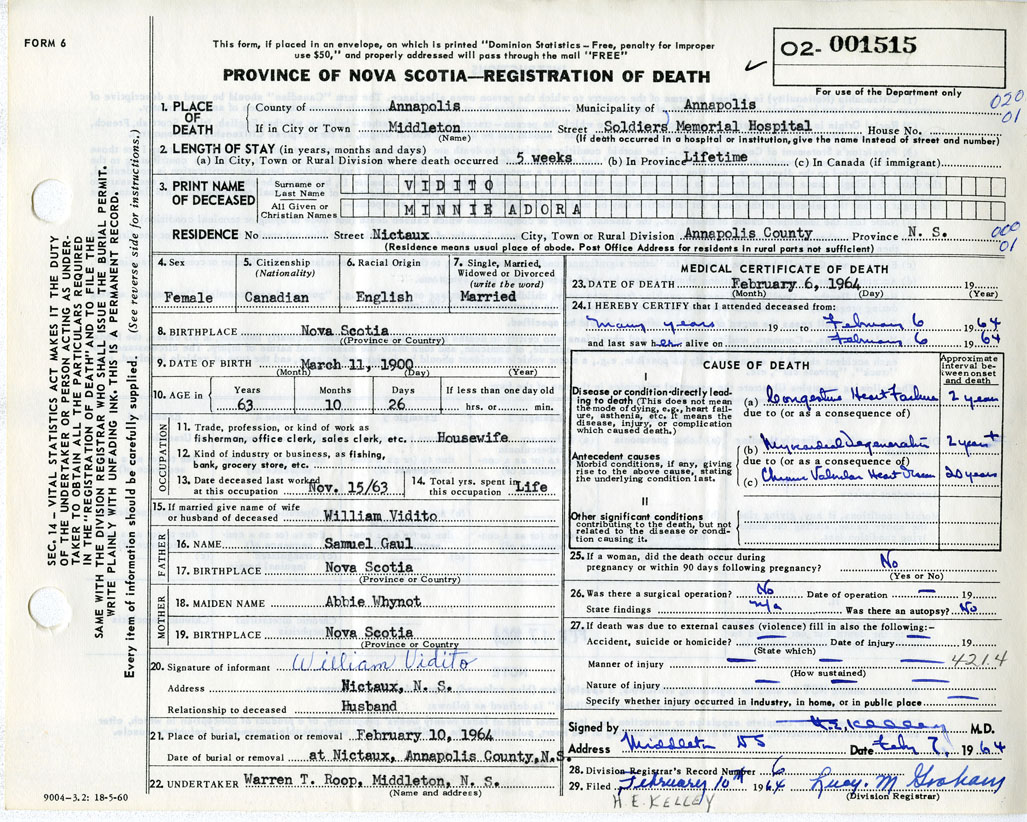 FORM 6
This form, if placed in an envelope, on which is printed "Dominion Statistics – Free, penalty for improper
use $50," and properly addressed will pass through the mail "FREE"
O2- 001515
For use of the Department only
PROVINCE OF NOVA SCOTIA—REGISTRATION OF DEATH
020
01
1. PLACE OF DEATH
County of Annapolis Municipality of Annapolis
If in City or Town Middleton Street Soldiers Memorial Hospital House No.
(Name) (If death occurred in a hospital or institution, give the name instead of street and number)
2. LENGTH OF STAY (in years, months and days)
(a) In City, Town or Rural Division where death occurred 5 weeks (b) In Province Lifetime (c) In Canada (if immigrant)
3. PRINT NAME OF DECEASED
Surname or Last Name VIDITO
All Given or Christian Names MINNIE ADORA
RESIDENCE No Street Nictaux City, Town or Rural Division Annapolis County Province N. S.
000
01
(Residence means usual place of abode. Post Office Address for residents in rural parts not sufficient)
SEC. 14 – VITAL STATISTICS ACT MAKES IT THE DUTY
OF THE UNDERTAKER OR PERSON ACTING AS UNDER-
TAKER TO OBTAIN ALL THE PARTICULARS REQUIRED
IN THE "REGISTRATION OF DEATH" AND TO FILE THE
SAME WITH THE DIVISION REGISTRAR WHO SHALL ISSUE THE BURIAL PERMIT.
WRITE PLAINLY WITH UNFADING INK. THIS IS A PERMANENT RECORD.
Every item of information should be carefully supplied. (See reverse side for instructions.)
4. Sex
Female
5. Citizenship
(Nationality)
Canadian
6. Racial Origin
English
7. Single, Married,
Widowed or Divorced
(write the word)
Married
8. BIRTHPLACE Nova Scotia
(Province or Country)
9. DATE OF BIRTH March 11, 1900
(Month) (Day) (Year)
10. AGE in
Years Months Days If less than one day old
63 10 26 hrs. or min.
OCCUPATION
11. Trade, profession, or kind of work as
fisherman, office clerk, sales clerk, etc. Housewife
12. Kind of industry or business, as fishing,
bank, grocery store, etc.
13. Date deceased last worked
at this occupation Nov. 15/63
14. Total yrs. spent in
this occupation Life
15. If married give name of wife
or husband of deceased William Vidito
FATHER
16. NAME Samuel Gaul
17. BIRTHPLACE Nova Scotia
(Province or Country)
MOTHER
18. MAIDEN NAME Abbie Whynot
19. BIRTHPLACE Nova Scotia
(Province or Country
20. Signature of informant William Vidito
Address Nictaux, N. S.
Relationship to deceased Husband
21. Place of burial, cremation or removal February 10, 1964
Date of burial or removal at Nictaux, Annapolis County, N.S.
22. UNDERTAKER Warren T. Roop, Middleton, N. S.
(Name and address)
9004–3.2: 18-5-60
MEDICAL CERTIFICATE OF DEATH
23. DATE OF DEATH February 6, 1964 19
(Month) (Day) (Year)
24. I HEREBY CERTIFY that I attended deceased from:
Many years 19 to February 6 1964
and last saw her alive on February 6 1964
CAUSE OF DEATH
Approximate
interval be-
tween onset
and death
I
Disease or condition-directly lead-
ing to death (This does not mean
the mode of dying, e.g., heart fail-
ure, asthenia, etc. It means the
disease, injury, or complication
which caused death.)
(a) Congestive Heart Failure 2 years
due to (or as a consequence of)
Antecedent causes
Morbid conditions, if any, giving
rise to the above cause, stating
the underlying condition last.
(b) Myocardial Degeneration 2 years+
due to (or as a consequence of)
(c) Chronic Valvular Heart Disease 20 years
II
Other significant conditions
contributing to the death, but not
related to the disease or condi-
tion causing it.
25. If a woman, did the death occur during
pregnancy or within 90 days following pregnancy? No
(Yes or No)
26. Was there a surgical operation? No Date of operation —
State findings n/a Was there an autopsy? No
27. If death was due to external causes (violence) fill in also the following:–
Accident, suicide or homicide? — Date of injury — 19
(State which)
Manner of injury — — — 421.4
(How sustained)
Nature of injury — — —
Specify whether injury occurred in industry, in home, or in public place —
Signed by H.E. Kelley M.D.
Address Middleton NS Date Feb 7, 1964
28. Division Registrar's Record Number 6
29. Filed February 10th 1964 Lucy M Graham
(Division Registrar)
H.E. KELLEY